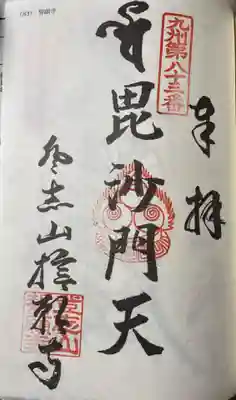 (83) 誓願寺
九州第八十三番
奉拝
毘沙門天
登志山誓願寺